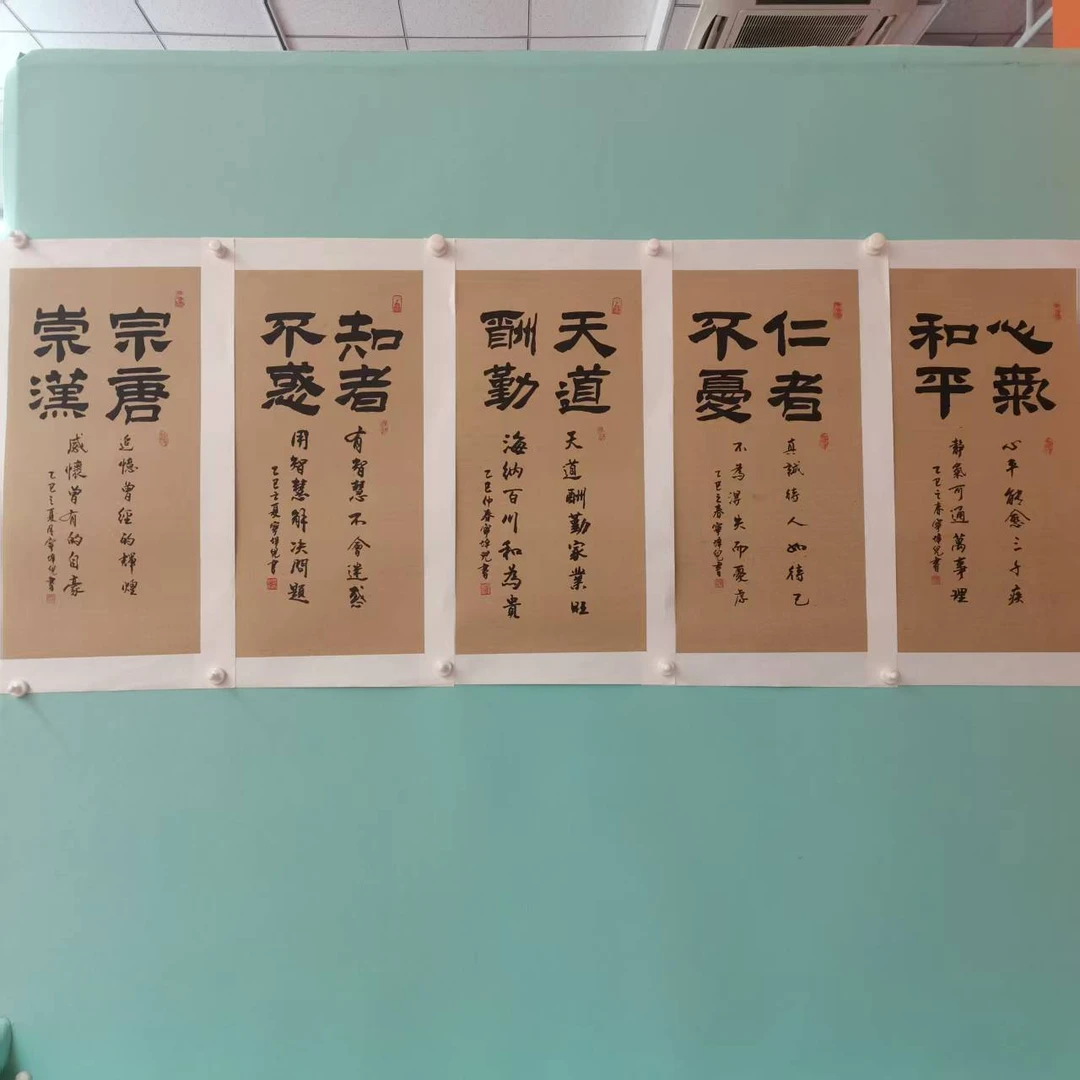 心氣
和平
心平能愈三千疾
靜氣可通萬事理
乙巳之春寧書
仁者
不憂
真誠待人如待己
不為得失而憂慮
乙巳之春寧書
天道
酬勤
天道酬勤家業旺
海納百川和為貴
乙巳仲春寧書
知者
不惑
有智慧不會迷惑
用智慧解决問題
乙巳之夏寧書
宗唐
崇漢
追憶曾經的輝煌
感懷曾有的自豪
乙巳之夏月寧書